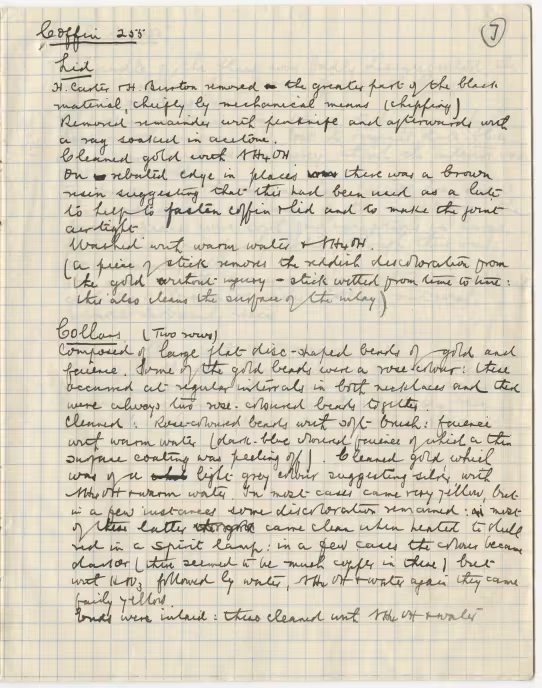 Coffin 255
7
Lid
H. Carter & H. Burton removed the greater part of the black
material, chiefly by mechanical means (chipping)
Removed remainder with penknife and afterwards with
a rag soaked in acetone.
Cleaned gold with NH4OH
On rebated edge in places there was a brown
resin suggesting that this had been used as a lute
to help to fasten coffin & lid and to make the joint
airtight.
Washed with warm water & NH4OH.
(a piece of stick removes the reddish discolouration from
the gold without injury - stick wetted from time to time:
this also cleans the surface of the inlay)
Collars (Two rows)
Composed of large flat disc-shaped beads of gold and
faience. Some of the gold beads were a rose colour: these
occurred at regular intervals in both necklaces and there
were always two rose-coloured beads together.
Cleaned: Rose-coloured beads with soft brush: faience
with warm water (dark-blue coloured faience of which a thin
surface coating was peeling off). Cleaned gold which
was of a light grey colour suggesting silver, with
NH4OH & warm water. In most cases came very yellow, but
in a few instances some discoloration remained: in most
of these latter came clean when heated to dull
red in a spirit lamp: in a few cases the colour became
darker (there seemed to be much copper in these) but
with HNO3 followed by water, NH4OH & water again they came
fairly yellow.
Ends were inlaid: these cleaned with NH4OH & water